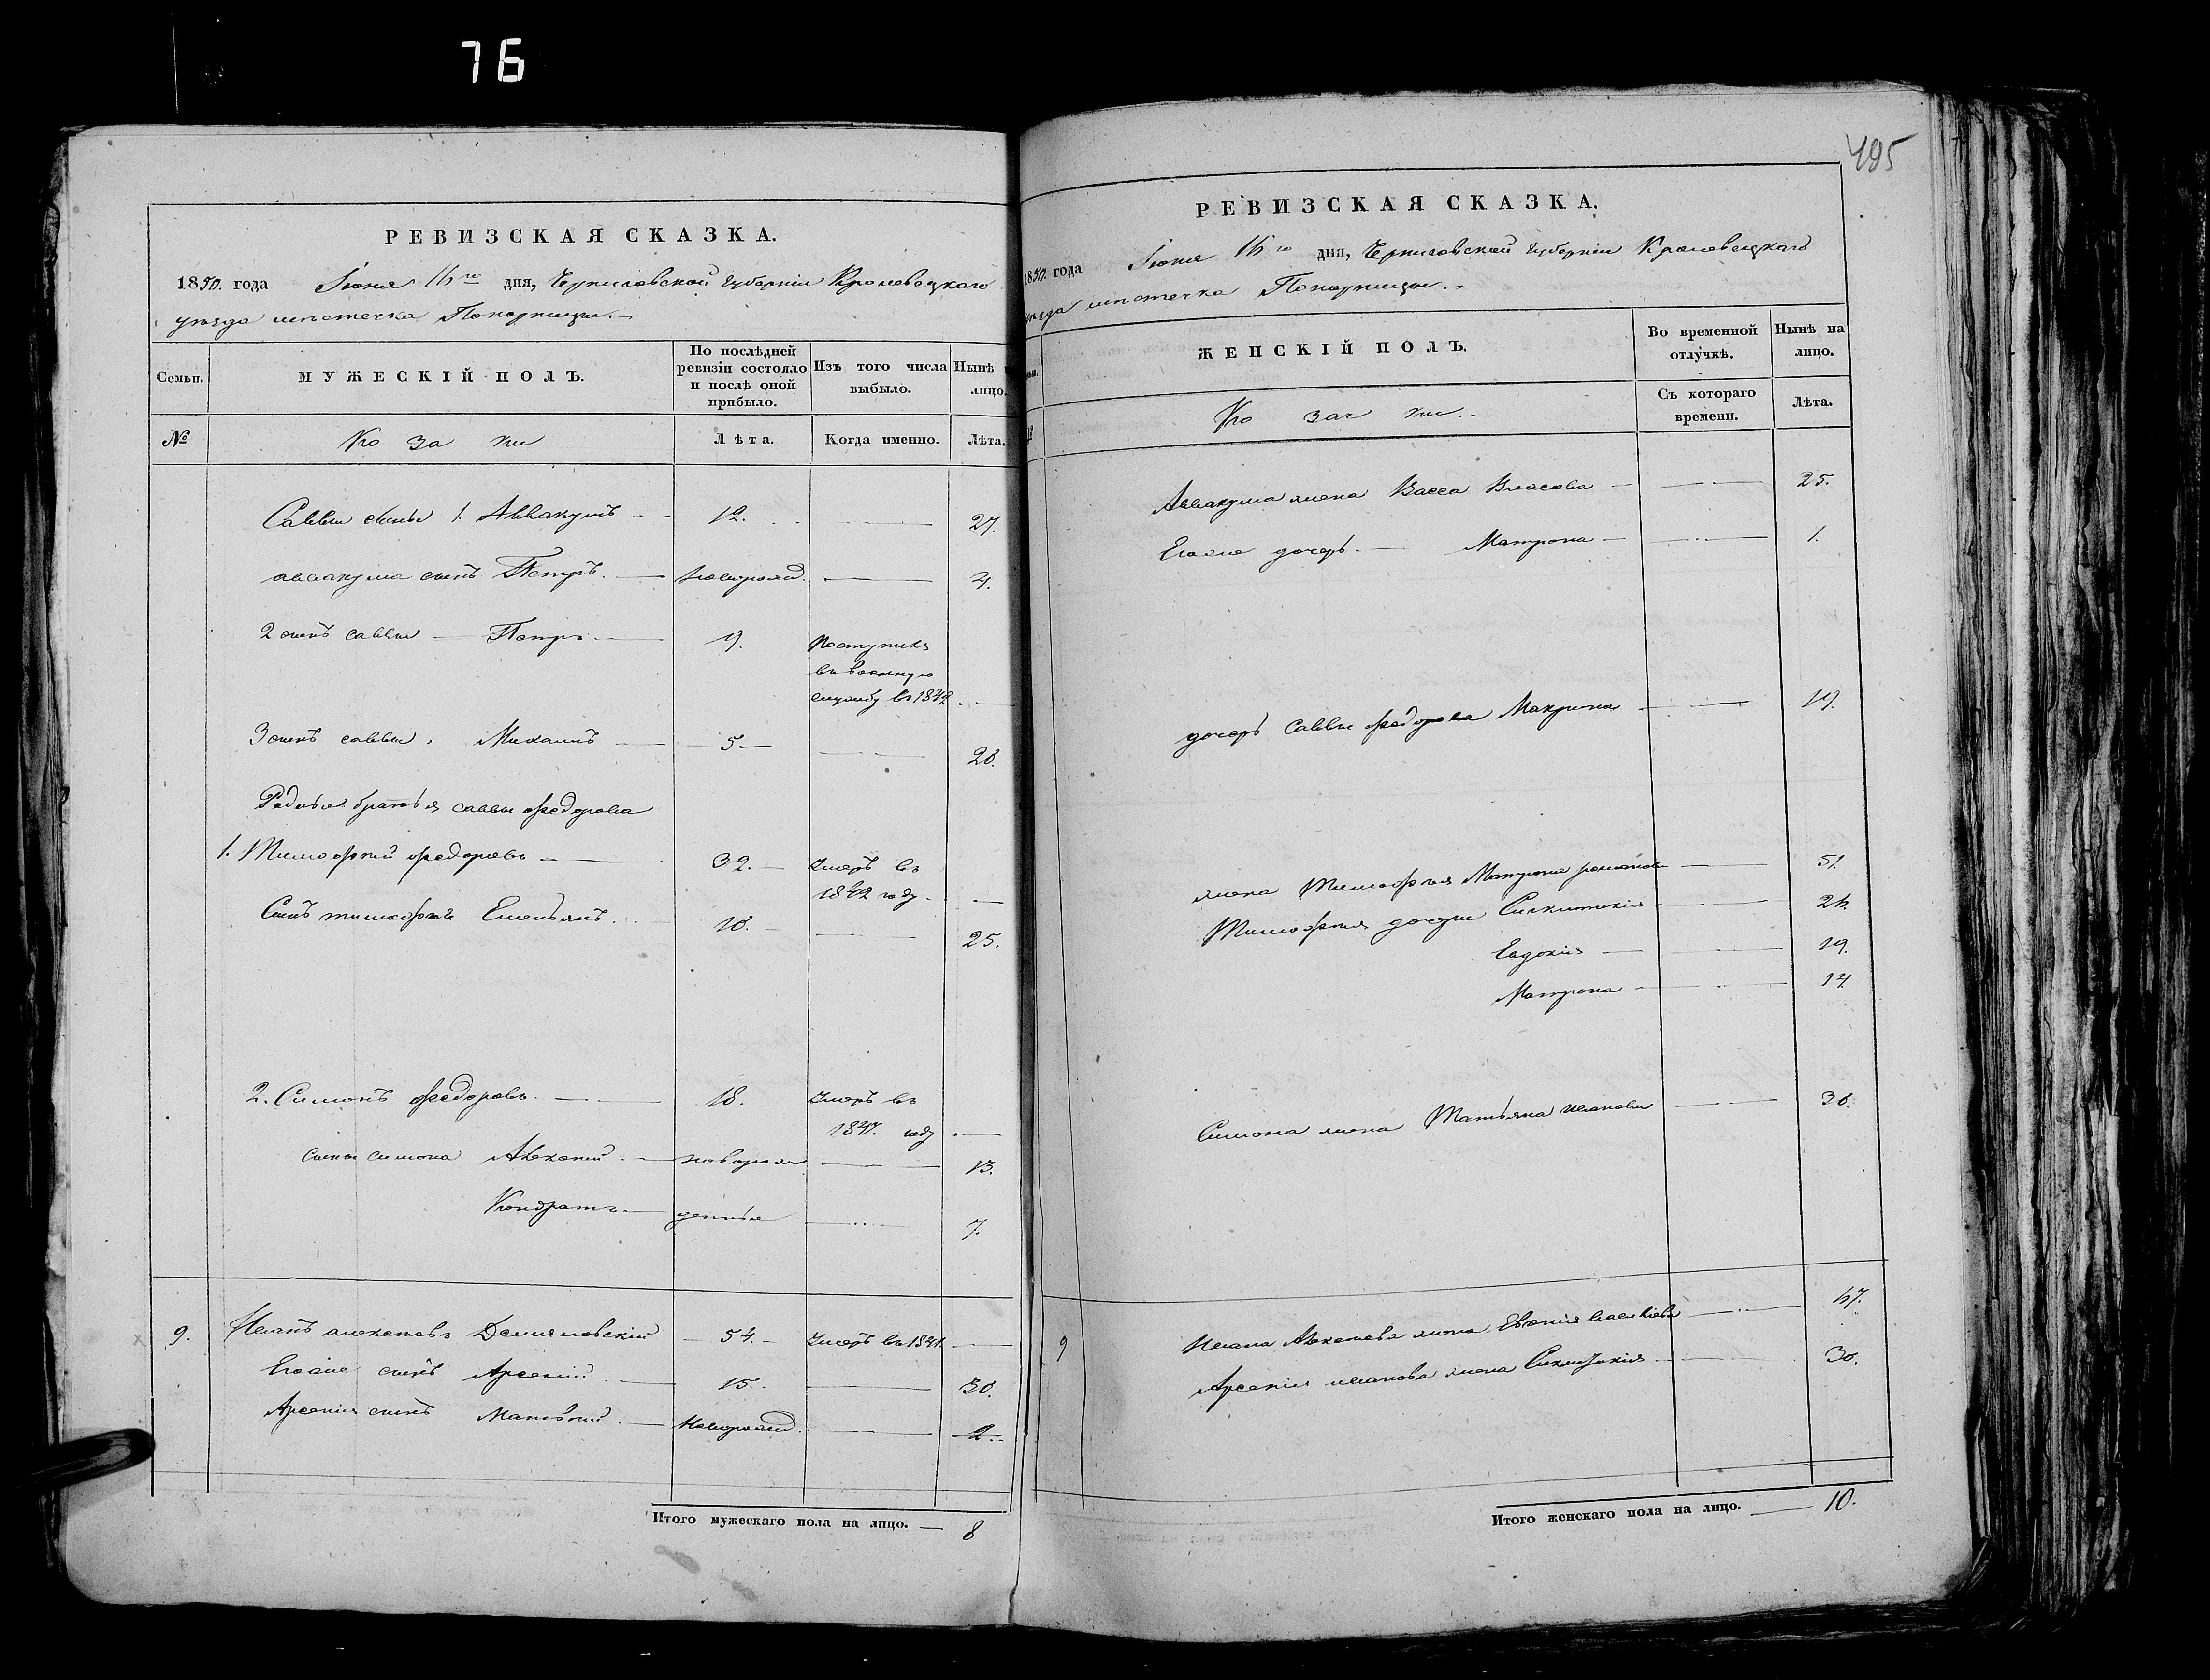 76
495
РЕВИЗСКАЯ СКАЗКА.
1850. года Іюня 16го дня, Черниговской губерніи Кролевецкаго
уѣзда мѣстечка Понорницы.
Семьи.
МУЖЕСКІЙ ПОЛЪ.
По послѣдней ревизіи состояло и послѣ оной прибыло.
Изъ того числа выбыло.
Нынѣ
лицо.
№
Ко за ки
Лѣта.
Когда именно.
Лѣта.
Саввы сыны 1. Аввакумъ 12. 27.
аввакума сынъ Петръ. новорожд. 4.
2 сынъ саввы Петръ 9. Поступилъ
въ военную
службу въ 1842
3 сынъ саввы Михаилъ 5 20.
Родные братья саввы Федорова
1. Тимофѣй Федоровъ 32. Умеръ въ
1842 году.
Сынъ тимофѣя Емельянъ. 10. 25.
2. Симонъ Федоровъ. 18. Умеръ въ
1847. году
сыны симона Алексѣй новорож 13.
Кондратъ денные 7.
9. Иванъ алексѣевъ Демяновскій 54. Умеръ въ 1841.
Его сынъ Арсеній 15. 30.
Арсенія сынъ новорожд. 2.
Итого мужескаго пола на лицо. 8
РЕВИЗСКАЯ СКАЗКА.
1850. года Іюня 16го дня, Черниговской губерніи Кролевецкаго
уѣзда мѣстечка Понорницы.
ЖЕНСКІЙ ПОЛЪ.
Во временной отлучкѣ.
Нынѣ на лицо.
Ко зач ки.
Съ котораго времени.
Лѣта.
Аввакума жена Васса Власова 25.
Его дочерь Матрона 1.
дочерь Саввы Федорова Макрина 19.
жена Тимофѣя Матрона романова 51.
Тимофѣя дочери Синклитикія 26.
Евдокія 19.
Матрона 14
Симона жена Татьяна иванова 36.
9 Ивана Алексѣева жена Евгенія 67.
Арсенія иванова жена Синклитикія 30.
Итого женскаго пола на лицо. 10.